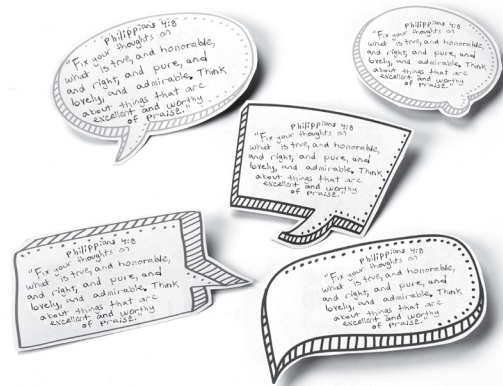 Philippians 4:8
"Fix your thoughts on
what is true, and honorable,
and right, and pure, and
lovely, and admirable. Think
about things that are
excellent and worthy
of praise."
Philippians 4:8
"Fix your thoughts on
what is true, and honorable,
and right, and pure, and
lovely, and admirable. Think
about things that are
excellent and worthy
of praise."
Philippians 4:8
"Fix your thoughts on
what is true, and honorable,
and right, and pure, and
lovely, and admirable. Think
about things that are
excellent and worthy
of praise."
Philippians 4:8
"Fix your thoughts on
what is true, and honorable,
and right, and pure, and
lovely, and admirable. Think
about things that are
excellent and worthy
of praise."
Philippians 4:8
"Fix your thoughts on
what is true, and honorable,
and right, and pure, and
lovely, and admirable. Think
about things that are
excellent and worthy
of praise."